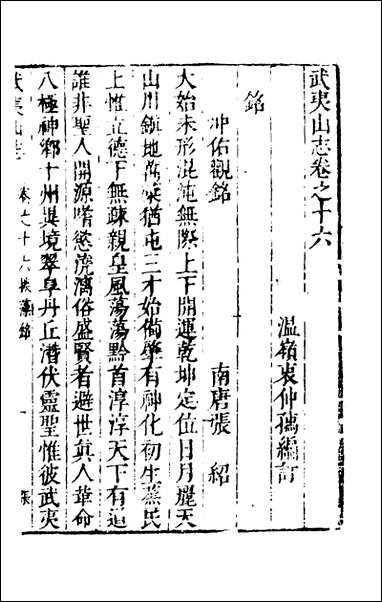 武夷山志卷之十六
溫嶺衷仲孺編訂
銘
冲佑觀銘 南唐張紹
大始未形混沌無際上下開運乾坤定位日月麗天
山川鎮地萬彙猶屯三才始備肇有神化初生蒸民
上惟立德下無疎親皇風蕩蕩黔首淳淳天下有道
誰非聖人開源嗜慾澆漓俗盛賢者避世眞人革命
八極神鄉十州異境翠阜丹丘潛伏靈聖惟彼武夷
武夷山志 卷之十六 銘 一